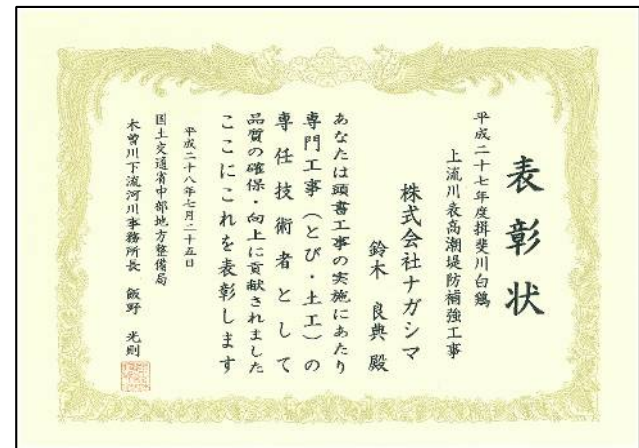 表彰状
平成二十七年度揖斐川白鶏
上流川表高潮堤防補強工事
株式会社ナガシマ
鈴木 良典 殿
あなたは頭書工事の実施にあたり
専門工事(とび・土工)の
専任技術者として
品質の確保・向上に貢献されました
ここにこれを表彰します
平成二十八年七月二十五日
国土交通省中部地方整備局
木曽川下流河川事務所長 飯野 光則